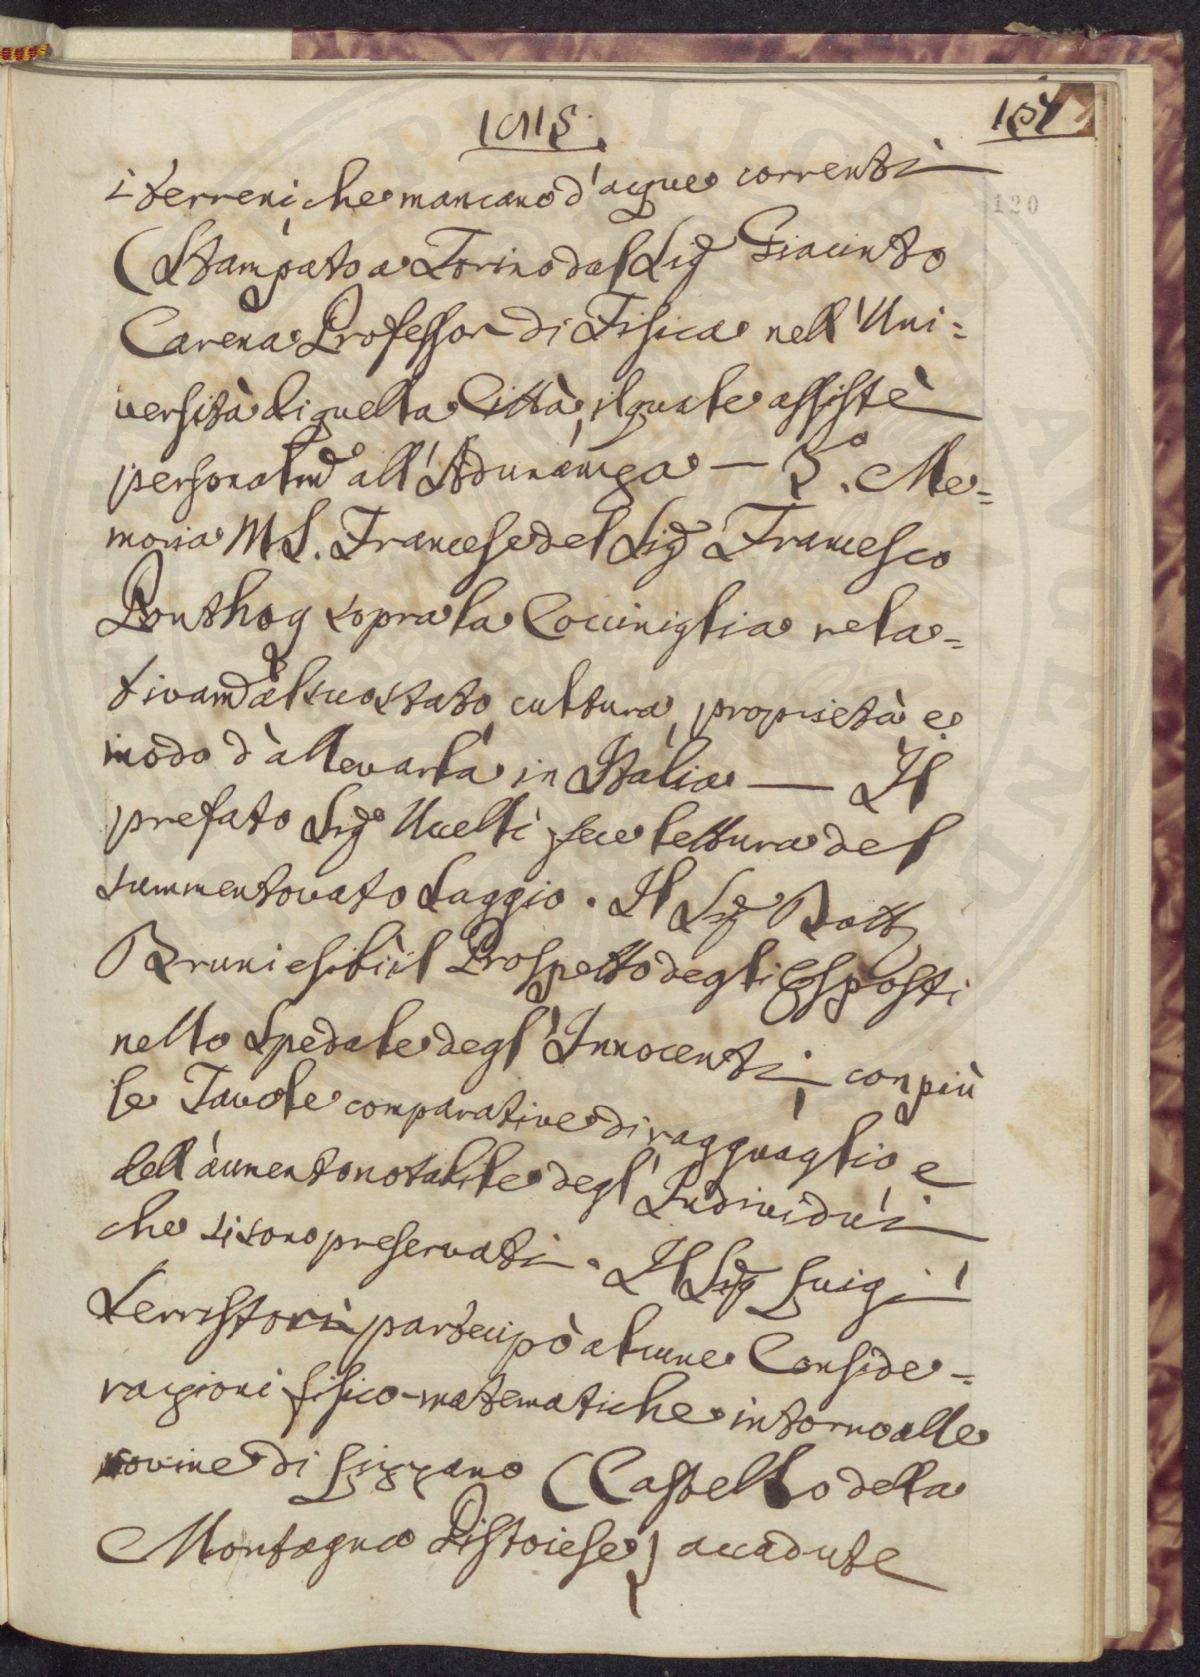 1815. 
i terreni che mancano d'acque correnti
(Stampato a Torino dal Sig.r Giacinto
Carena Professor di Fisica nell'Uni=
versità di quella Città, il quale assistè
personalm.e all'Adunanza — 3.° Me=
moria MS. Francese del Sig.r Francesco
Bonthog sopra la Cocciniglia rela=
tivam.e al suo stato, cultura, proprietà e
modo d'allevarla in Italia — Il
prefato Sig.r Uccelli fece lettura del
summentovato Saggio. Il Sig.r Dott.
Bruni esibì il Prospetto degli Esposti
nello Spedale degl'Innocenti, con più
le Tavole comparative di ragguaglio, e
dell'aumento notabile degl'Individui
che si sono preservati. Il Sig.r Luigi
Serristori partecipò alcune Conside=
razioni fisico-matematiche intorno alle
rovine di Lizzano (Castello della
Montagna Pistoiese) accadute
120